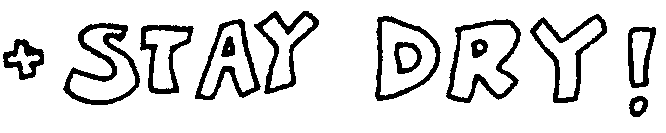 + STAY DRY!